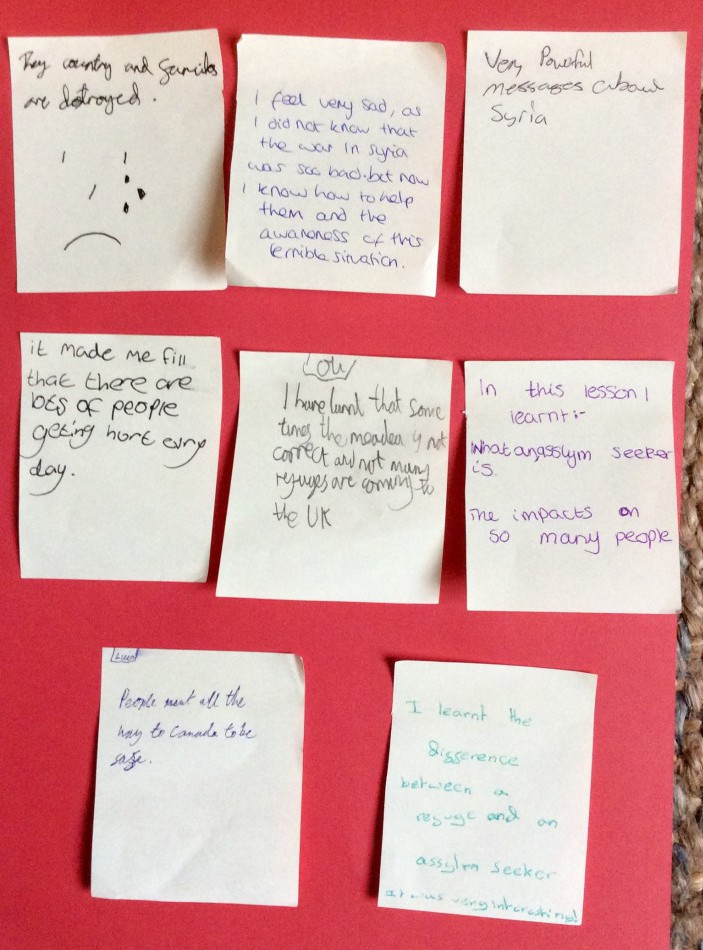 They country and families
are destroyed.
I feel very sad, as
I did not know that
the war in syria
was soo bad. but now
I know how to help
them and the
awareness of this
terrible situation.
Very Powerful
messages about
Syria
it made me fill
that there are
lots of people
geting hort evry
day.
I have lurnt that some
times the meadea is not
correct and not many
refuges are coming to
the UK
In this lesson I
learnt:-
What an asslym seeker
is.
The impacts on
so many people
People went all the
way to Canada to be
safe.
I learnt the
difference
between a
refuge and an
assylm seeker
it was very interesting!